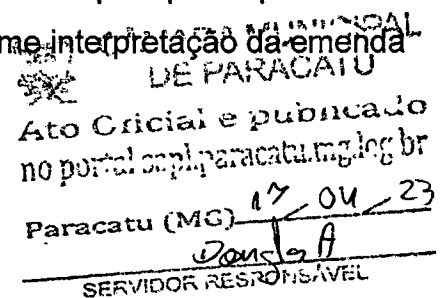 me interpretação da emenda
MUNICIPAL
DE PARACATU
Ato Oficial e publicado
no portal sapl.paracatu.mg.leg.br
Paracatu (MG) 17 / 04 / 23
SERVIDOR RESPONSÁVEL